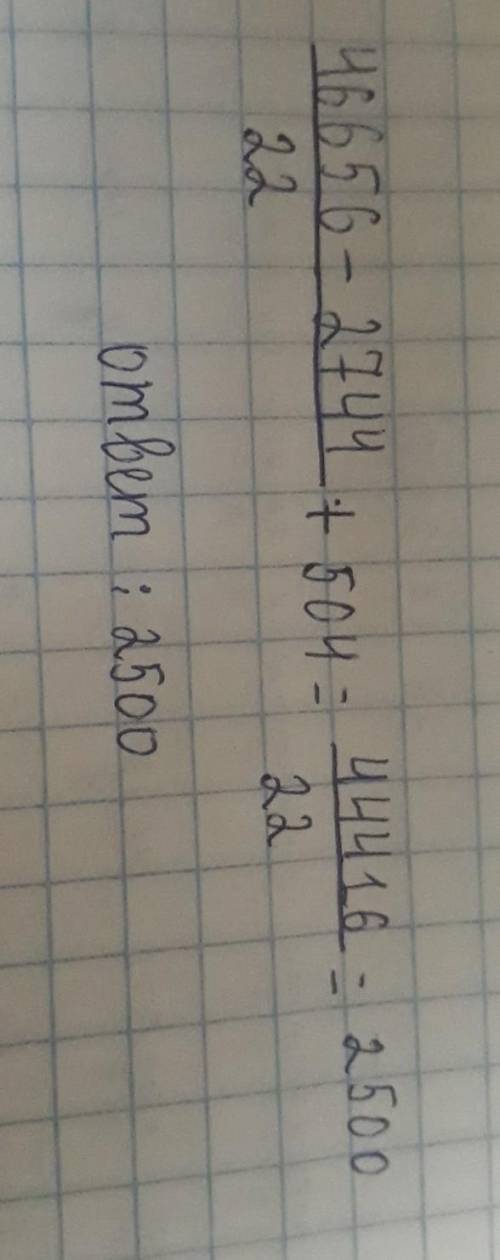 46656 - 2744 + 504 = 44416 = 2500
22 22
ответ : 2500